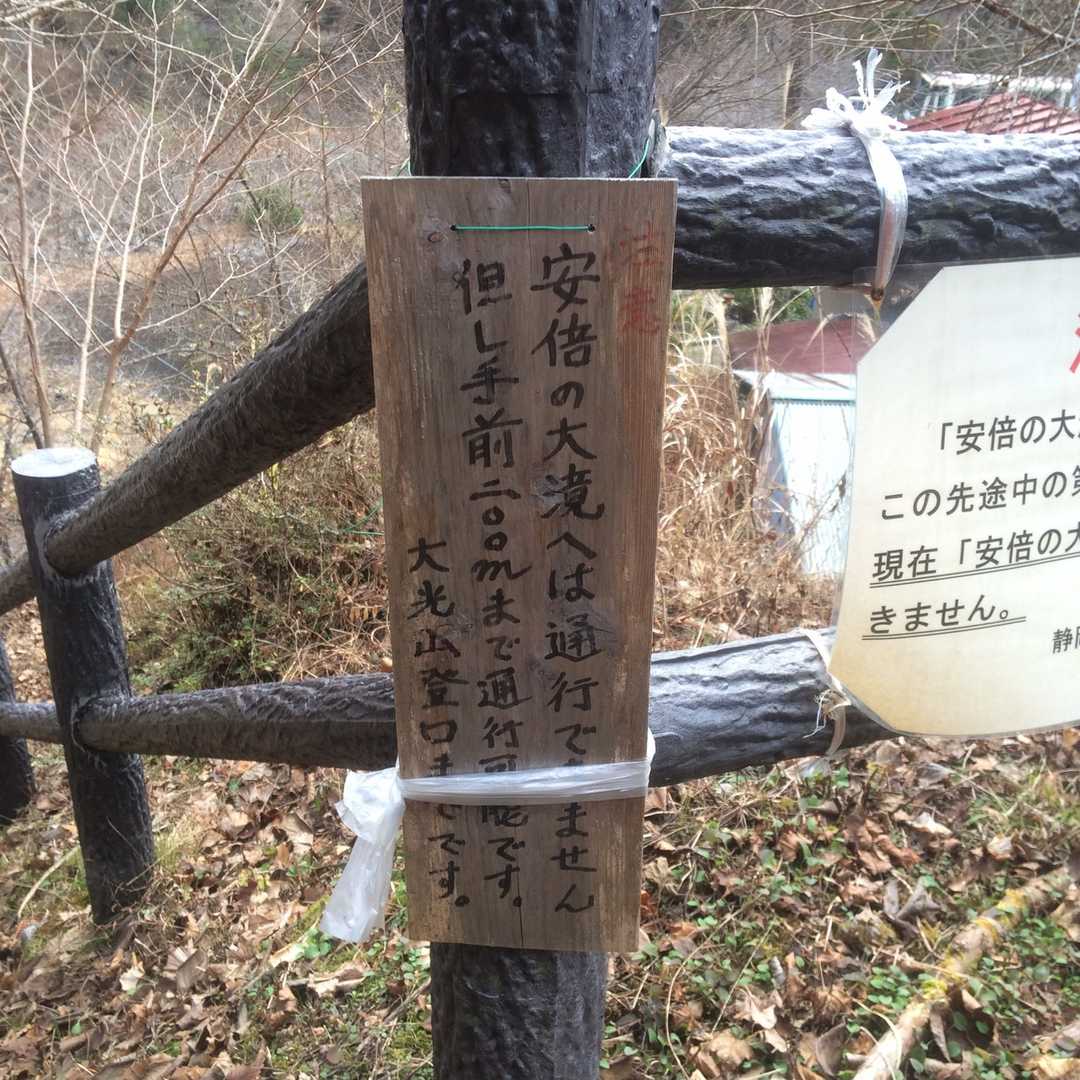 注意
安倍の大滝へは通行できません
但し手前二〇〇mまで通行可能です。
大光山登口までです。
「安倍の大
この先途中の第
現在「安倍の大
きません。
静岡